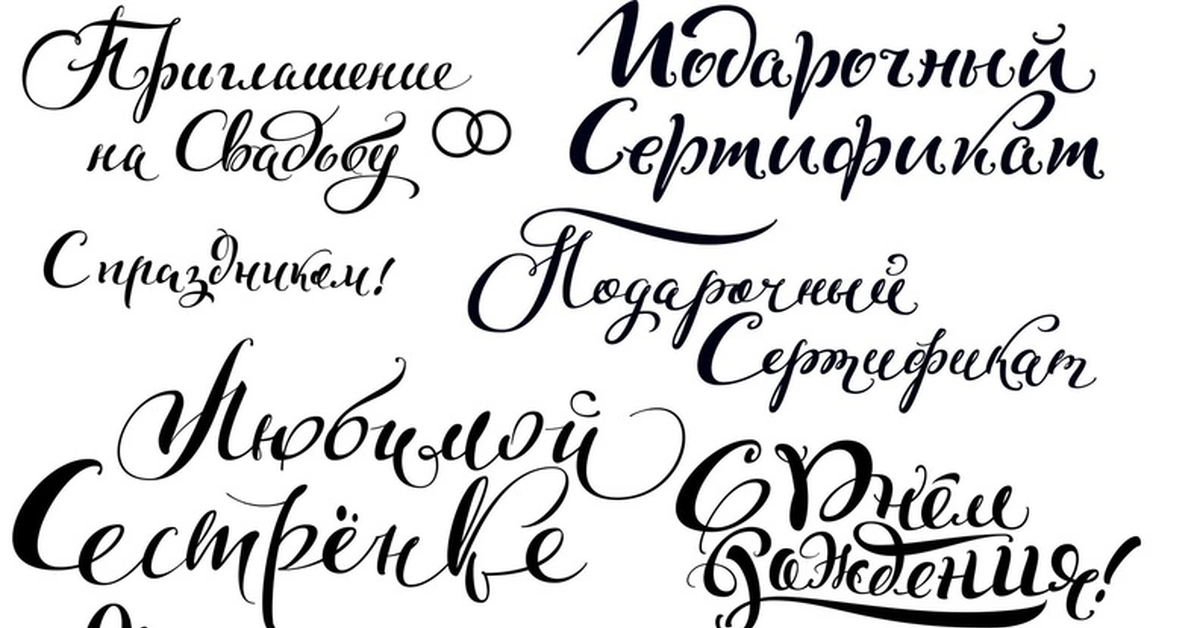 Приглашение
на Свадьбу
Подарочный
Сертификат
С праздником!
Подарочный
Сертификат
Любимой
Сестрёнке
С Днём
Рождения!